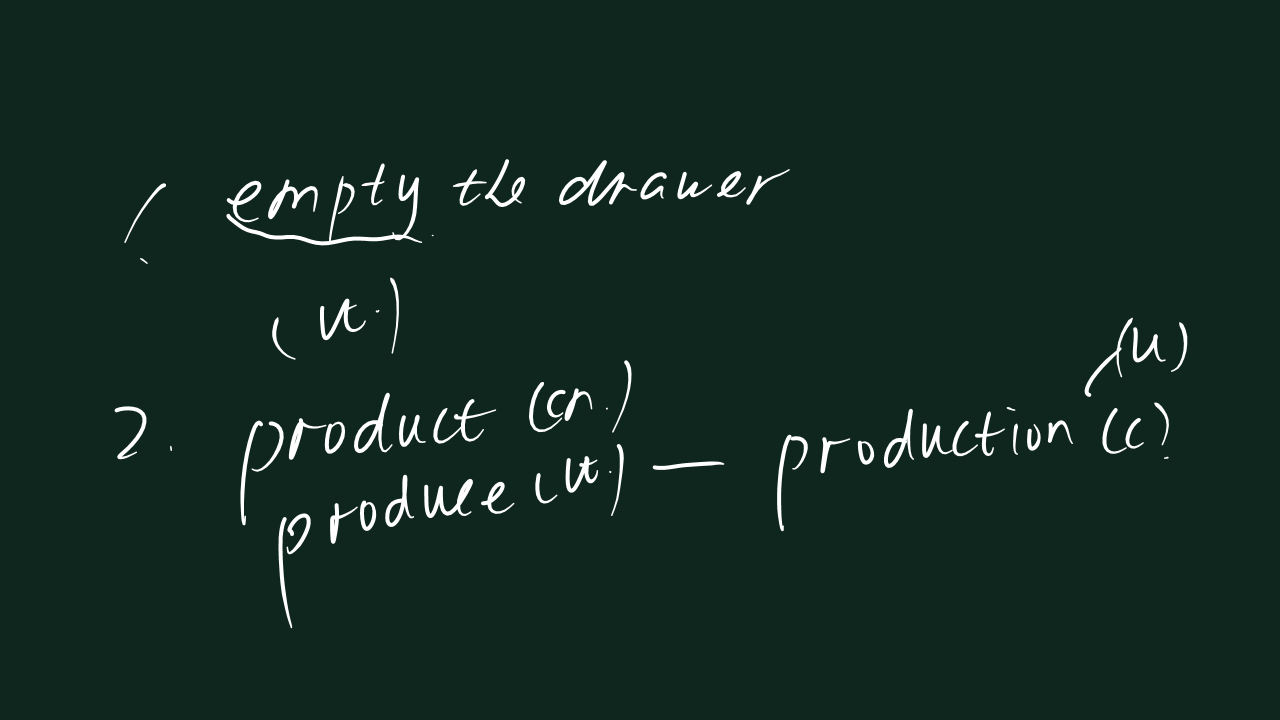 1. empty the drawer
(vt.)
(u)
2. product (cn.)
produce (vt.) — production (c)